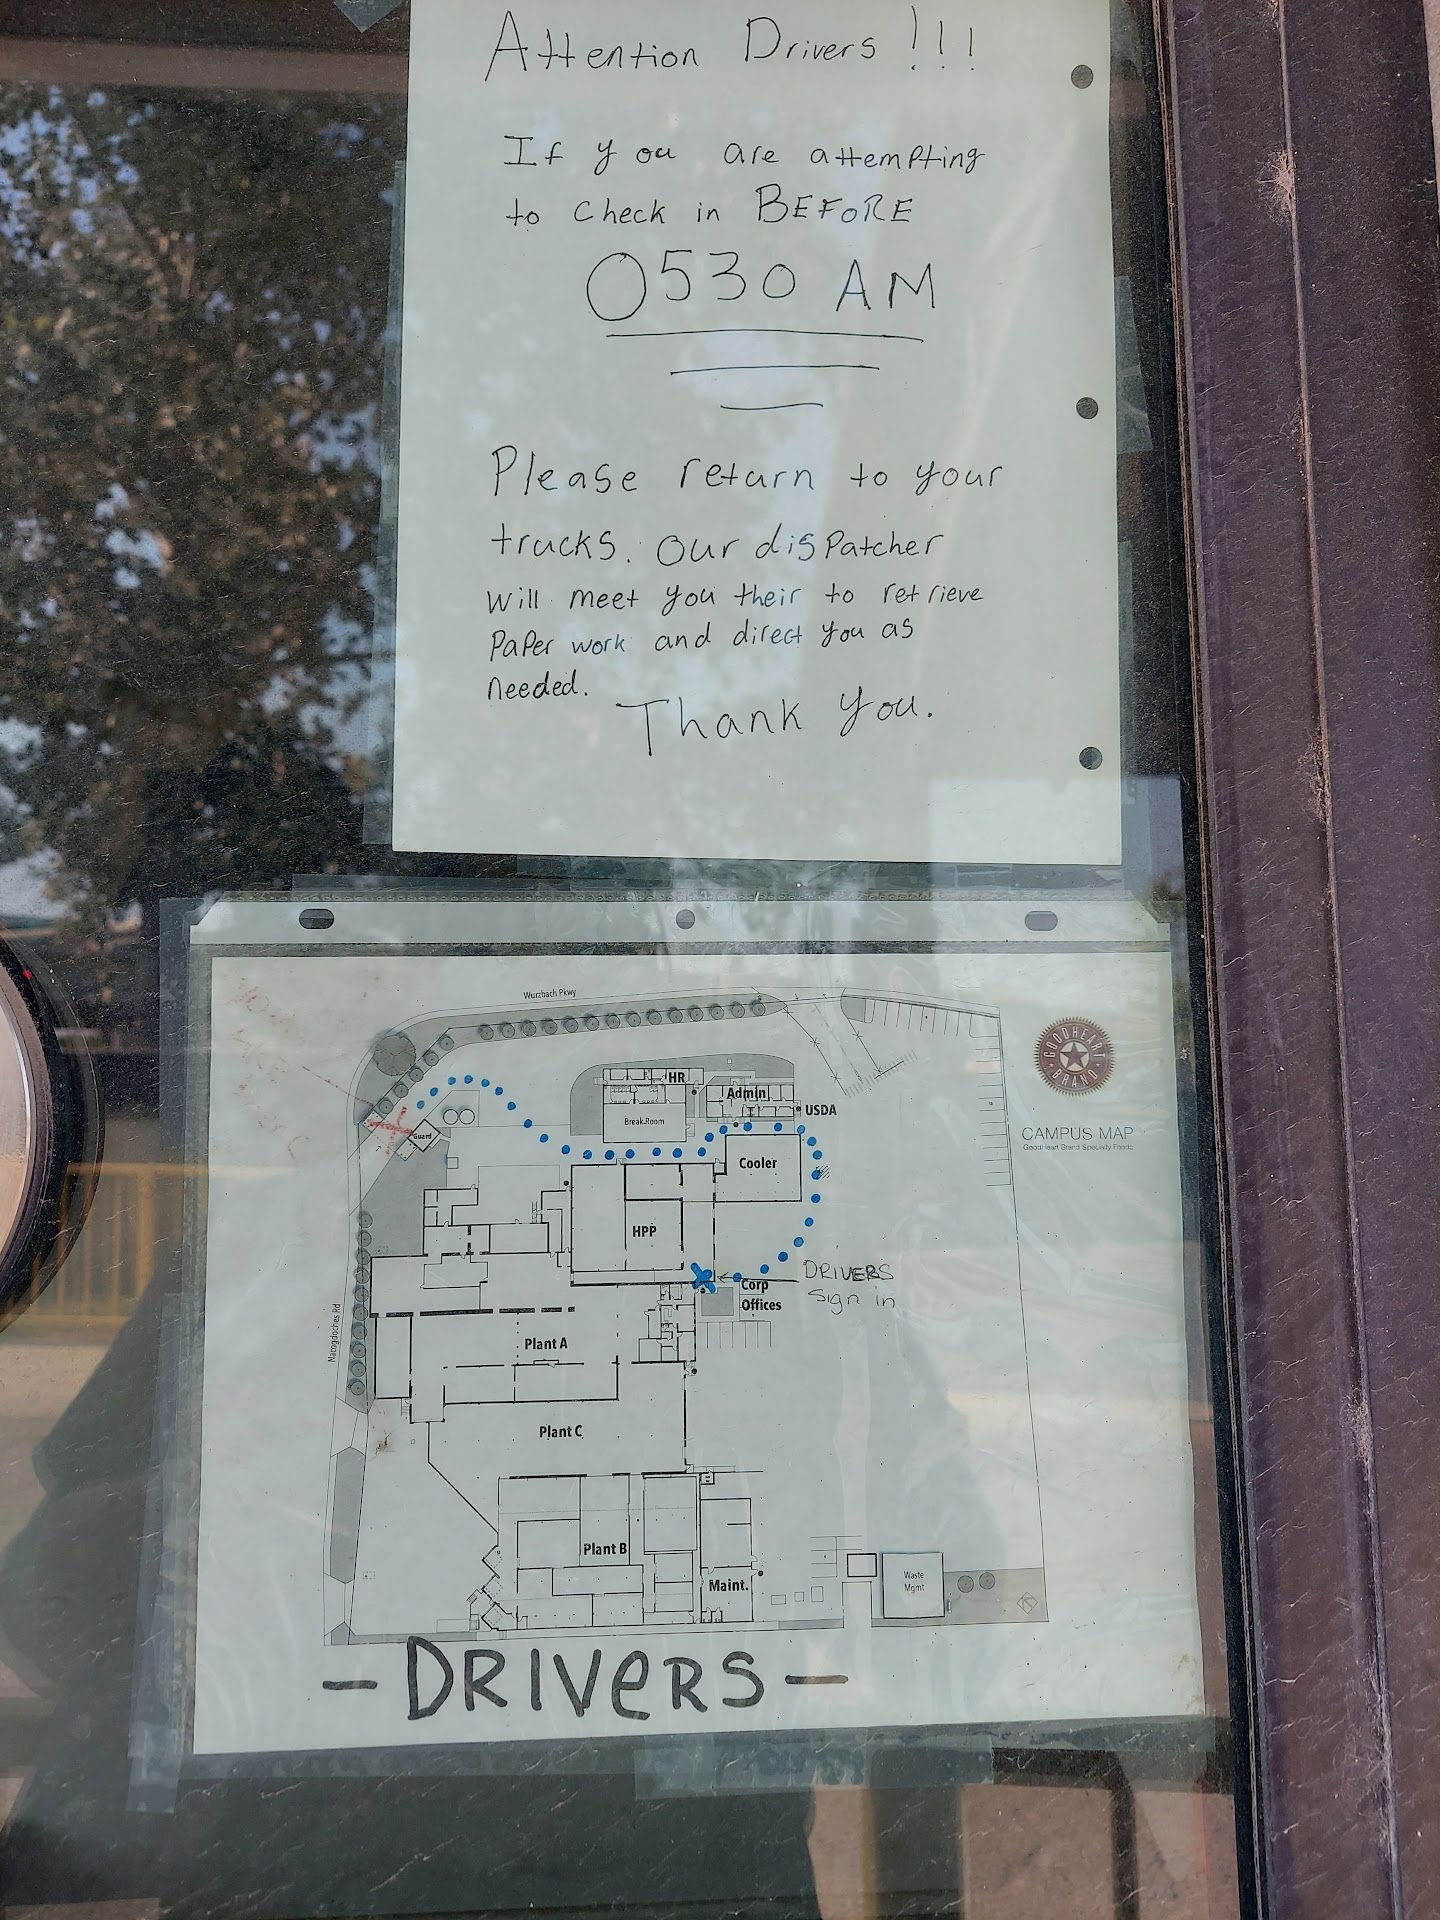 Attention Drivers!!!
If you are attempting
to check in BEFORE
0530 AM
Please return to your
trucks. Our dispatcher
will meet you their to retrieve
paper work and direct you as
needed.
Thank you.
Wurzbach Pkwy
GOODHEART
BRAND
HR
Admin
USDA
Break Room
Guard
CAMPUS MAP
GoodHeart Brand Specialty Foods
Cooler
HPP
DRIVERS
Sign in
Corp
Offices
Nacogdoches Rd
Plant A
Plant C
Plant B
Maint.
Waste
Mgmt
- DRIVERS -